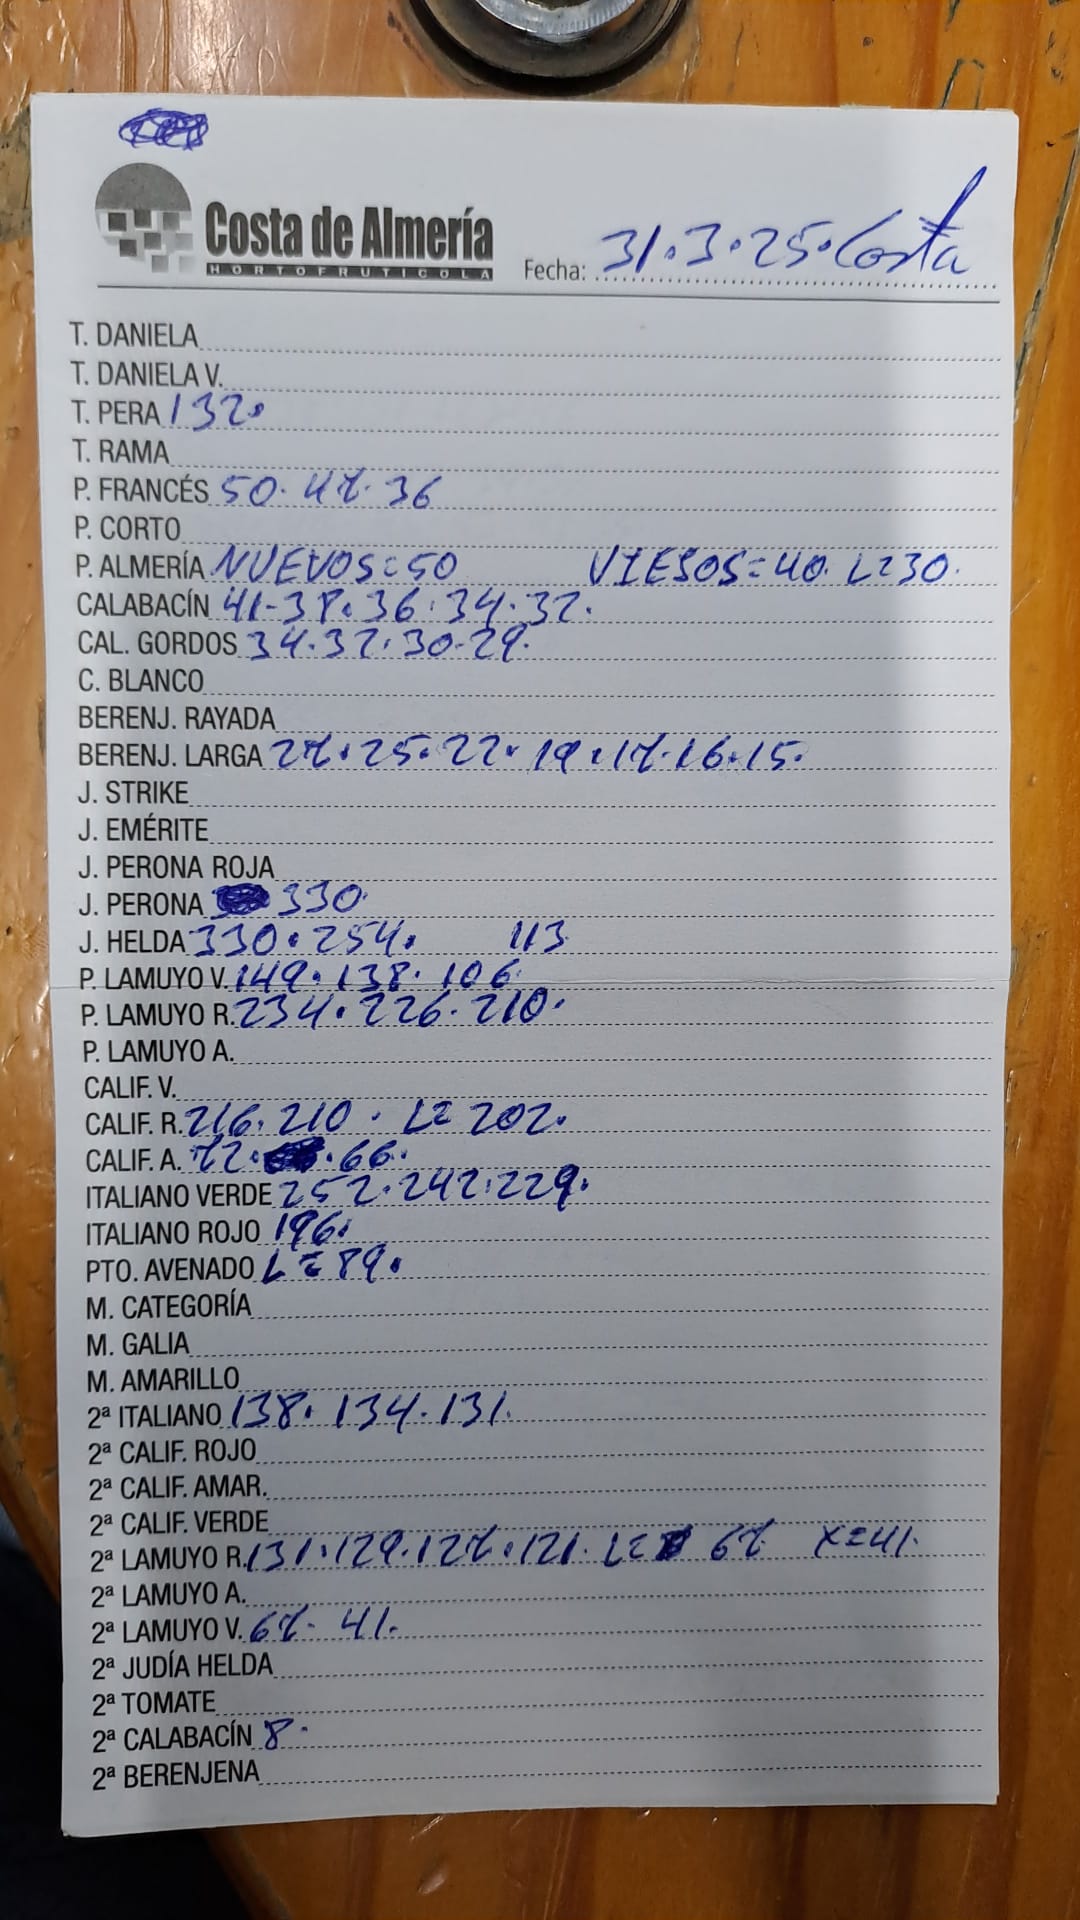 Costa de Almería
HORTOFRUTICOLA
Fecha: 31.3.25. Costa
T. DANIELA
T. DANIELA V.
T. PERA 132.
T. RAMA
P. FRANCÉS 50. 47. 36
P. CORTO
P. ALMERÍA NUEVOS=50 VIESOS=40. L=30.
CALABACÍN 41-38.36.34.32.
CAL. GORDOS 34.32.30.29.
C. BLANCO
BERENJ. RAYADA
BERENJ. LARGA 27.25.22.19.17.16.15.
J. STRIKE
J. EMÉRITE
J. PERONA ROJA
J. PERONA 330.
J. HELDA 330.254. 113
P. LAMUYO V. 149.138.106.
P. LAMUYO R. 234.226.210.
P. LAMUYO A.
CALIF. V.
CALIF. R. 216.210. L=202.
CALIF. A. 72. .66.
ITALIANO VERDE 252.242.229.
ITALIANO ROJO 196.
PTO. AVENADO L=89.
M. CATEGORÍA
M. GALIA
M. AMARILLO
2ª ITALIANO 138.134.131.
2ª CALIF. ROJO
2ª CALIF. AMAR.
2ª CALIF. VERDE
2ª LAMUYO R. 131.129.127.121. L= 67 X=41.
2ª LAMUYO A.
2ª LAMUYO V. 67. 41.
2ª JUDÍA HELDA
2ª TOMATE
2ª CALABACÍN 8.
2ª BERENJENA